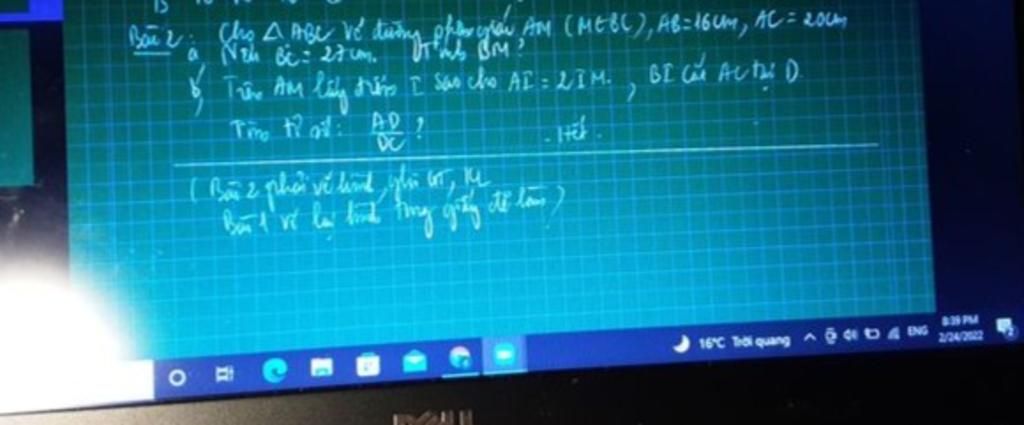 Bài 2: Cho △ABC vẽ đường phân giác AM (M∈BC), AB=16cm, AC=20cm
a Nếu BC=27cm. Tính BM?
b, Trên AM lấy điểm I sao cho AI=2IM., BI cắt AC tại D.
Tìm tỉ số: AD/DC?
- Hết.
(Bài 2 phải vẽ hình, ghi GT, KL
Bài 1 vẽ lại hình trong giấy để làm)
8:39 PM
16°C Trời quang ENG 2/24/2022
DELL